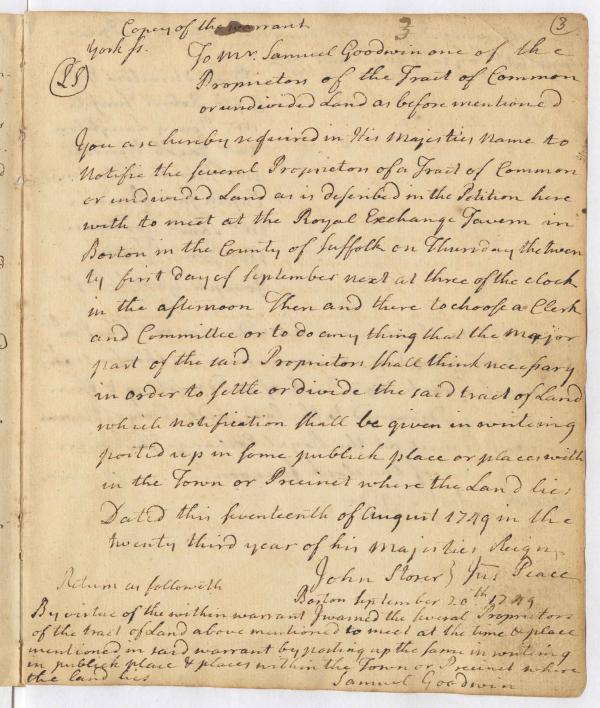 Copey of the warrant
3
(3)
York ss.
To Mr. Samuel Goodwin one of the
Proprietors of the Tract of Common
or undivided Land as before mentioned
You are hereby required in His Majesties Name to
Notifie the several Proprietors of a Tract of Common
or undivided Land as is described in the Petition here
with to meet at the Royal Exchange Tavern in
Boston in the County of Suffolk on Thursday the twen
ty first day of September next at three of the clock
in the afternoon Then and there to choose a Clerk
and Committee or to do any thing that the major
part of the said Proprietors shall think necessary
in order to settle or divide the said tract of Land
which notification shall be given in writing
posted up in some publick place or places with
in the Town or Precinct where the Land lies
Dated this seventeenth of August 1749 in the
twenty third year of his Majesties Reign
John Storer } Jus Peace
Return as followeth
Boston September 20th 1749
By virtue of the within warrant I warned the several Proprietors
of the tract of Land above mentioned to meet at the time & place
mentioned in said warrant by posting up the same in writing
in publick place & places within the Town or Precinct where
the land lies
Samuel Goodwin